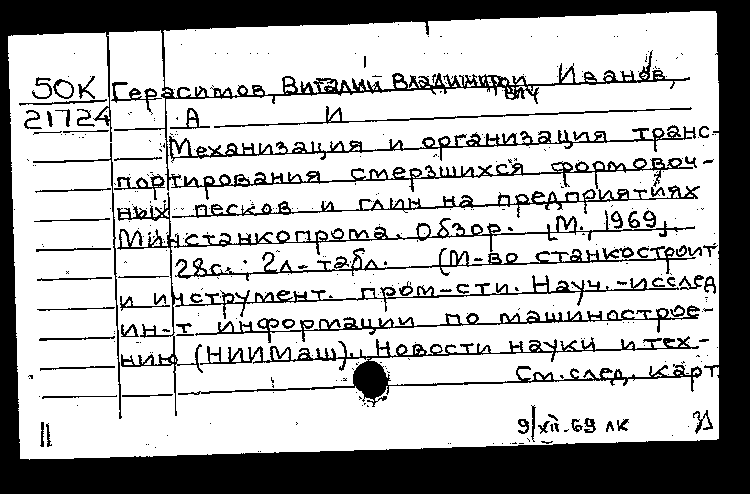 50К Герасимов, Виталий Владимирович Иванов,
21724 А И
Механизация и организация транс-
портирования смерзшихся формовоч-
ных песков и глин на предприятиях
Минстанкопрома. Обзор. [М., 1969].
28с.; 2л. табл. (М-во станкостроит.
и инструмент. пром-сти. Науч.-исслед
ин-т информации по машинострое-
нию (НИИМаш). Новости науки и тех-
См. след. карт.
11 9/XII.69 лк